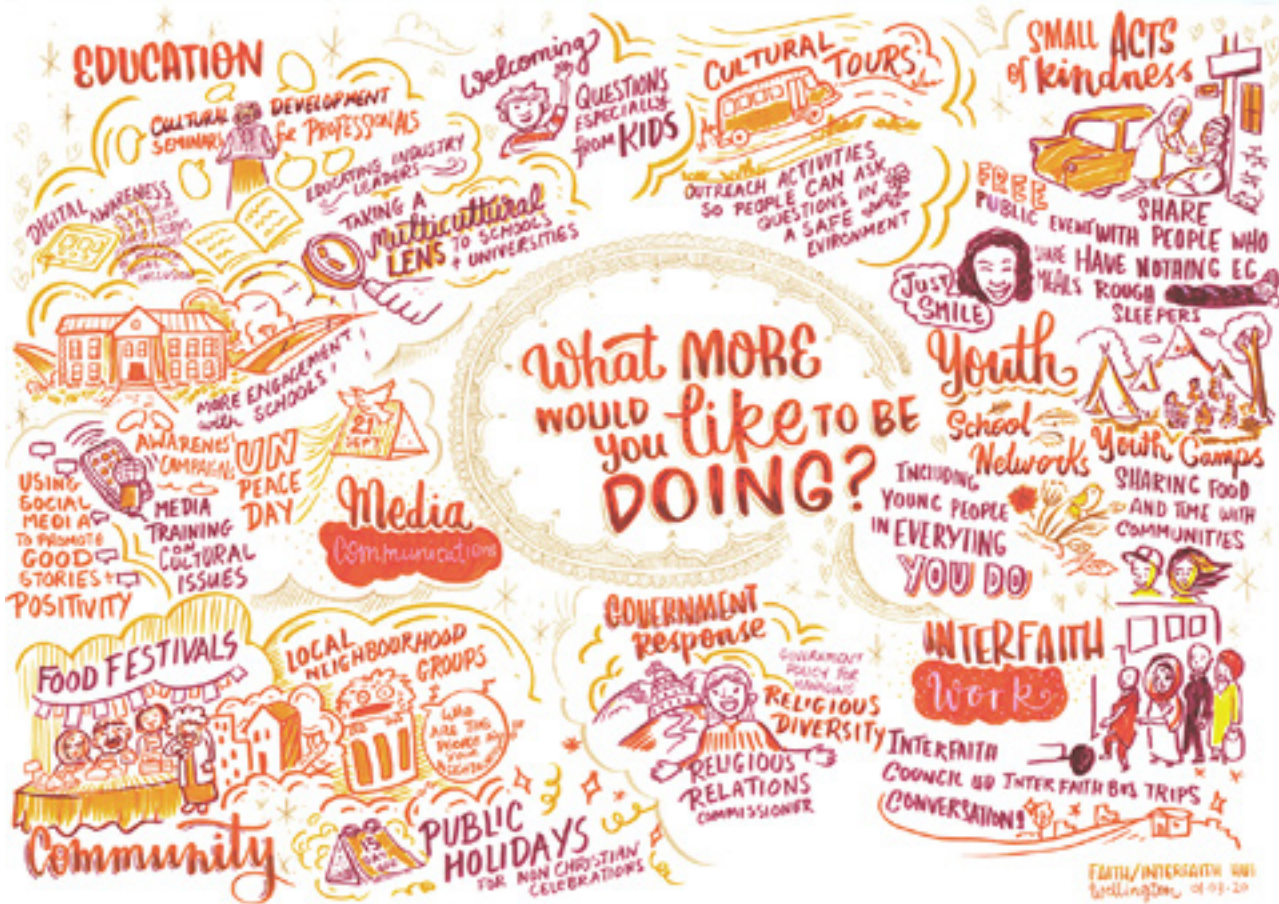 EDUCATION
CULTURAL DEVELOPMENT
SEMINARS for PROFESSIONALS
EDUCATING INDUSTRY
LEADERS
DIGITAL AWARENESS
TAKING A
multicultural
LENS TO SCHOOLS
+ UNIVERSITIES
MORE ENGAGEMENT
with SCHOOLS!
Welcoming
QUESTIONS
ESPECIALLY
from KIDS
CULTURAL
TOURS
OUTREACH ACTIVITIES
SO PEOPLE CAN ASK
QUESTIONS IN
A SAFE
EVIRONMENT
SMALL ACTS
of kindness
FREE
PUBLIC EVENT
SHARE
MEALS
SHARE
WITH PEOPLE WHO
HAVE NOTHING EG
ROUGH
SLEEPERS
JUST
SMILE
What MORE
WOULD
you like TO BE
DOING?
Youth
School
Networks
Youth Camps
INCLUDING
YOUNG PEOPLE
IN EVERYTING
YOU DO
SHARING FOOD
AND TIME WITH
COMMUNITIES
USING
SOCIAL
MEDIA
TO PROMOTE
GOOD
STORIES +
POSITIVITY
MEDIA
TRAINING
ON
CULTURAL
ISSUES
UN
PEACE
DAY
21
SEPT
Media
Communications
FOOD FESTIVALS
LOCAL
NEIGHBOURHOOD
GROUPS
WHO
ARE THE
PEOPLE IN
YOUR
Community
15
PUBLIC
HOLIDAYS
FOR NON CHRISTIAN
CELEBRATIONS
GOVERNMENT
Response
GOVERNMENT
POLICY FOR
RELIGIOUS
DIVERSITY
RELIGIOUS
RELATIONS
COMMISSIONER
INTERFAITH
Work
INTERFAITH
COUNCIL
INTERFAITH BUS TRIPS
CONVERSATIONS
FAITH/INTERFAITH
Wellington 01·03·20